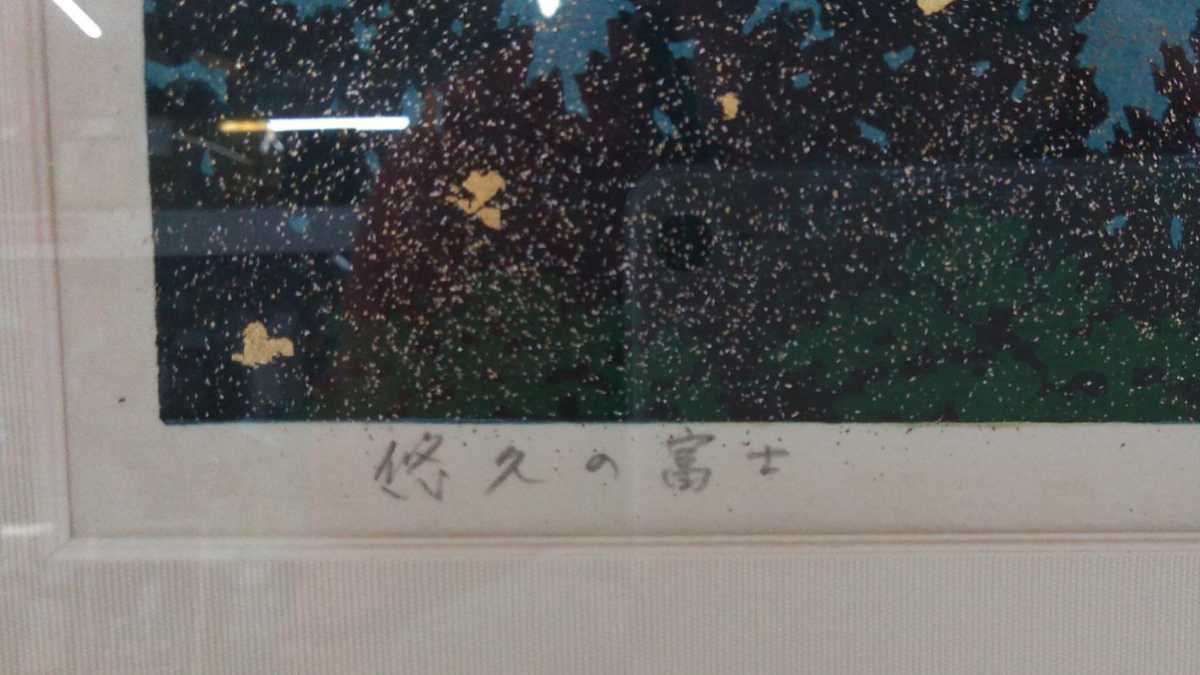 悠久の富士